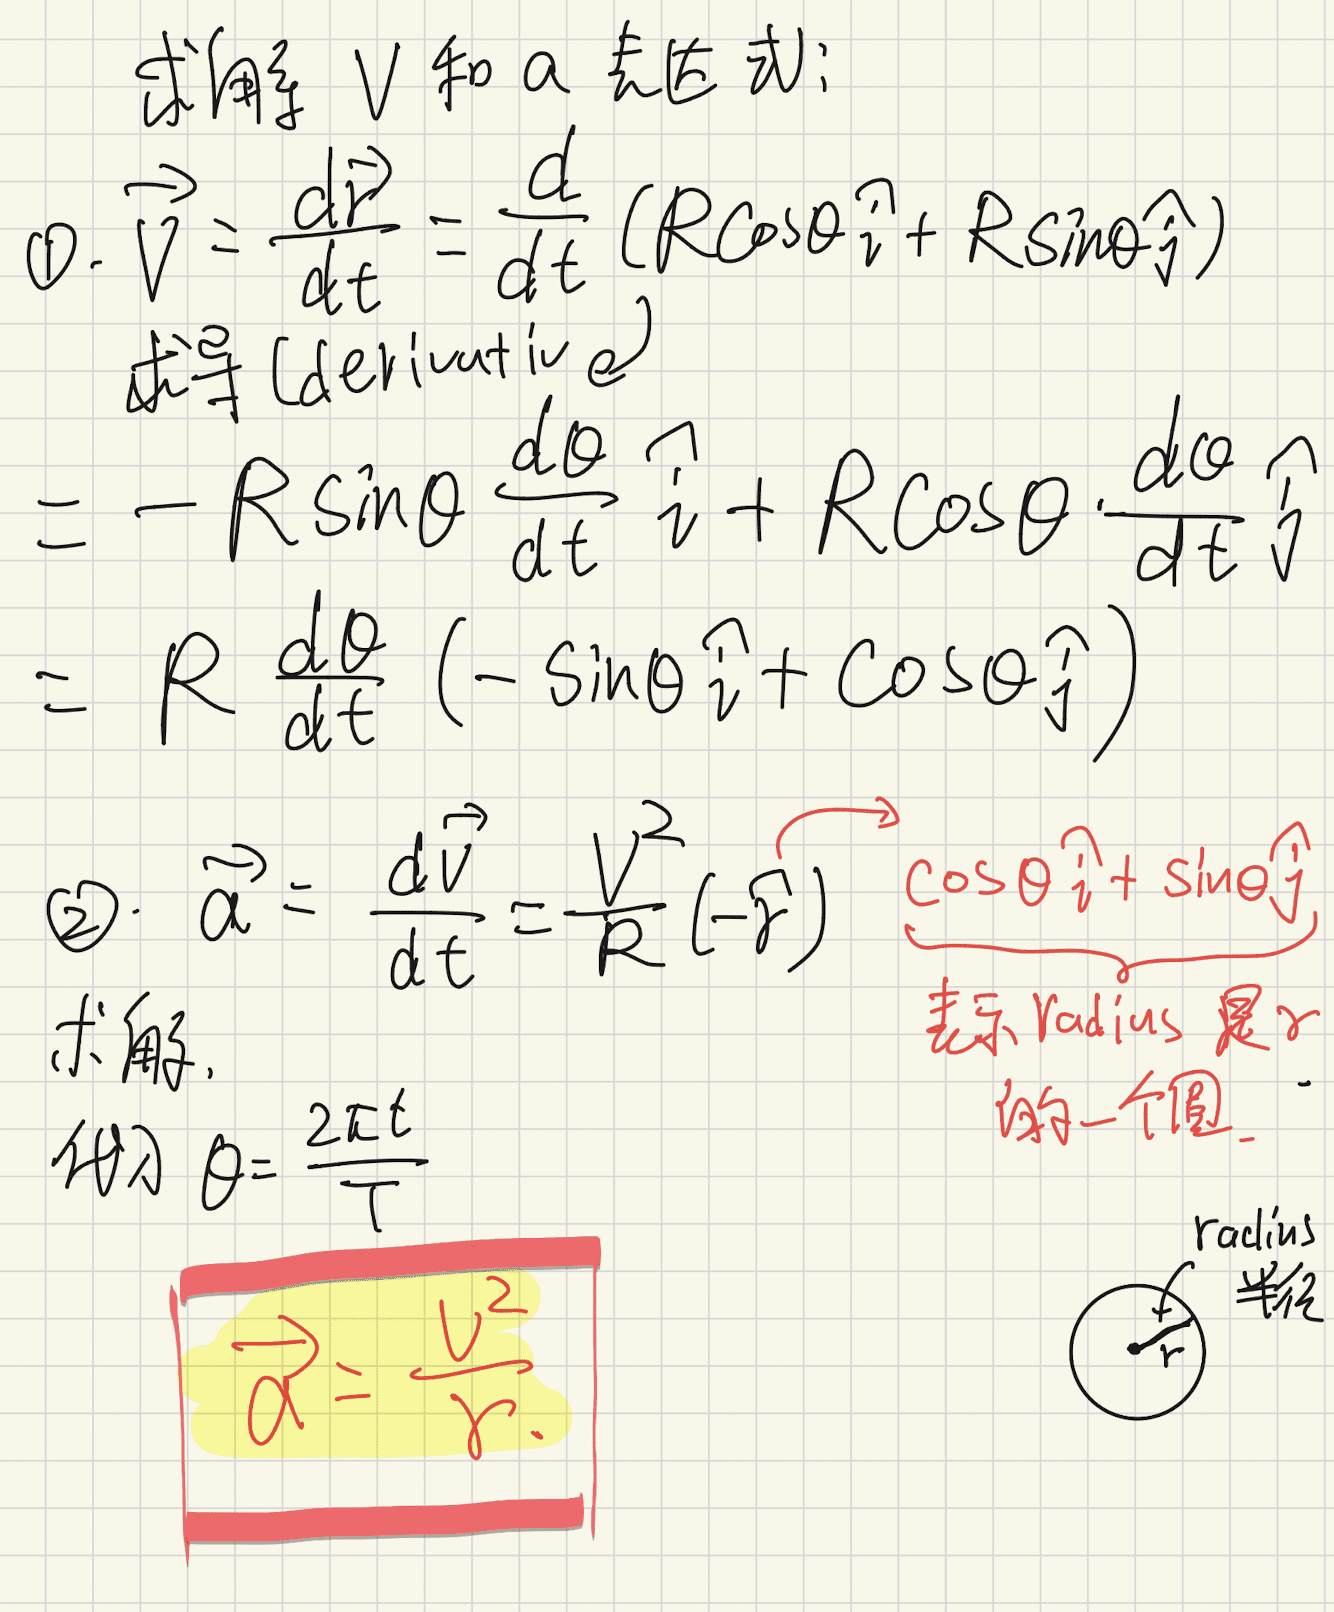 求解 V 和 a 表达式:
①. V⃗ = dr⃗/dt = d/dt (Rcosθ î + Rsinθ ĵ)
求导 (derivative)
= -Rsinθ dθ/dt î + Rcosθ · dθ/dt ĵ
= R dθ/dt (-sinθ î + cosθ ĵ)
②. a⃗ = dv⃗/dt = V²/R (-r̂) → cosθ î + sinθ ĵ
表示 radius 是 r
的一个圆.
求解.
代入 θ = 2πt/T
radius
半径
r
a⃗ = V²/r.